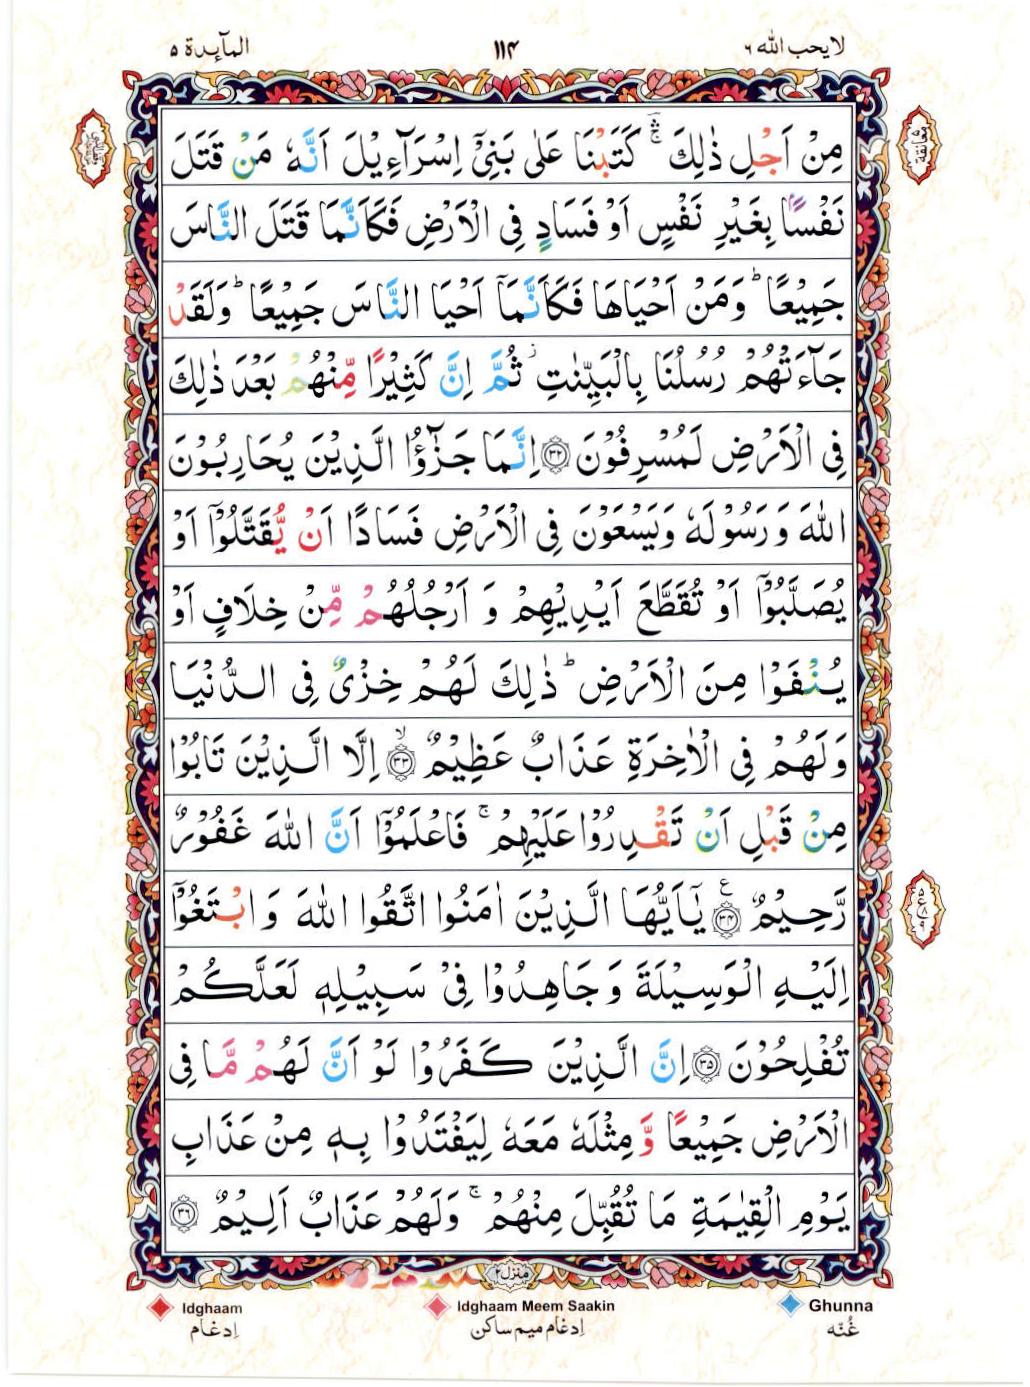 لا یحب الله ۶
۱۱۴
المآىِٕدة ۵
مِنْ اَجْلِ ذٰلِكَ ۚۛ كَتَبْنَا عَلٰى بَنِیْۤ اِسْرَآءِیْلَ اَنَّهٗ مَنْ قَتَلَ
معانقة
نَفْسًۢا بِغَیْرِ نَفْسٍ اَوْ فَسَادٍ فِی الْاَرْضِ فَكَاَنَّمَا قَتَلَ النَّاسَ
جَمِیْعًا ؕ وَمَنْ اَحْیَاهَا فَكَاَنَّمَاۤ اَحْیَا النَّاسَ جَمِیْعًا ؕ وَلَقَدْ
جَآءَتْهُمْ رُسُلُنَا بِالْبَیِّنٰتِ ؗ ثُمَّ اِنَّ كَثِیْرًا مِّنْهُمْ بَعْدَ ذٰلِكَ
فِی الْاَرْضِ لَمُسْرِفُوْنَ ۝۳۲ اِنَّمَا جَزٰٓؤُا الَّذِیْنَ یُحَارِبُوْنَ
اللّٰهَ وَرَسُوْلَهٗ وَیَسْعَوْنَ فِی الْاَرْضِ فَسَادًا اَنْ یُّقَتَّلُوْۤا اَوْ
یُصَلَّبُوْۤا اَوْ تُقَطَّعَ اَیْدِیْهِمْ وَ اَرْجُلُهُمْ مِّنْ خِلَافٍ اَوْ
یُنْفَوْا مِنَ الْاَرْضِ ؕ ذٰلِكَ لَهُمْ خِزْیٌ فِی الدُّنْیَا
وَلَهُمْ فِی الْاٰخِرَةِ عَذَابٌ عَظِیْمٌ ۝۳۳ۙ اِلَّا الَّذِیْنَ تَابُوْا
مِنْ قَبْلِ اَنْ تَقْدِرُوْا عَلَیْهِمْ ۚ فَاعْلَمُوْۤا اَنَّ اللّٰهَ غَفُوْرٌ
رَّحِیْمٌ ۝۳۴ ع یٰۤاَیُّهَا الَّذِیْنَ اٰمَنُوا اتَّقُوا اللّٰهَ وَ ابْتَغُوْۤا
اِلَیْهِ الْوَسِیْلَةَ وَ جَاهِدُوْا فِیْ سَبِیْلِهٖ لَعَلَّكُمْ
تُفْلِحُوْنَ ۝۳۵ اِنَّ الَّذِیْنَ كَفَرُوْا لَوْ اَنَّ لَهُمْ مَّا فِی
الْاَرْضِ جَمِیْعًا وَّ مِثْلَهٗ مَعَهٗ لِیَفْتَدُوْا بِهٖ مِنْ عَذَابِ
یَوْمِ الْقِیٰمَةِ مَا تُقُبِّلَ مِنْهُمْ ۚ وَلَهُمْ عَذَابٌ اَلِیْمٌ ۝۳۶
منزل ۲
Idghaam Idghaam Meem Saakin Ghunna
اِدغام اِدغام میم ساکن غُنّه